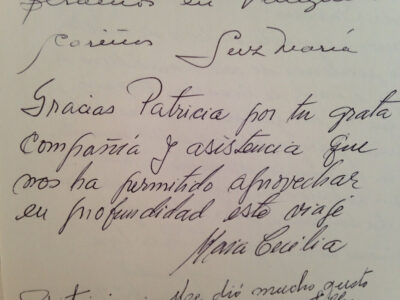 Cariños Luz María
Gracias Patricia por tu grata
Compañía y asistencia que
nos ha permitido aprovechar
en profundidad este viaje
María Cecilia
Me dió mucho gusto